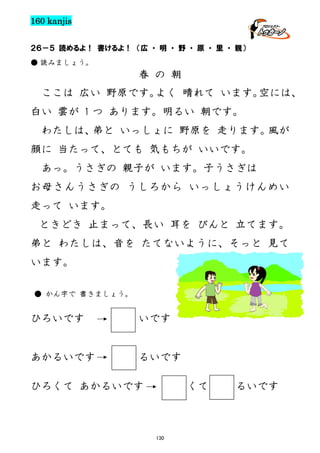 160 kanjis
プロジェクト
26-5 読めるよ! 書けるよ! (広・明・野・原・里・親)
● 読みましょう。
春 の 朝
ここは 広い 野原です。よく 晴れて います。空には、
白い 雲が 1つ あります。明るい 朝です。
わたしは、弟と いっしょに 野原を 走ります。風が
顔に 当たって、とても 気もちが いいです。
あっ。うさぎの 親子が います。子うさぎは
お母さんうさぎの うしろから いっしょうけんめい
走って います。
ときどき 止まって、長い 耳を ぴんと 立てます。
弟と わたしは、音を たてないように、そっと 見て
います。
● かん字で 書きましょう。
ひろいです → いです
あかるいです → るいです
ひろくて あかるいです → くて るいです
130